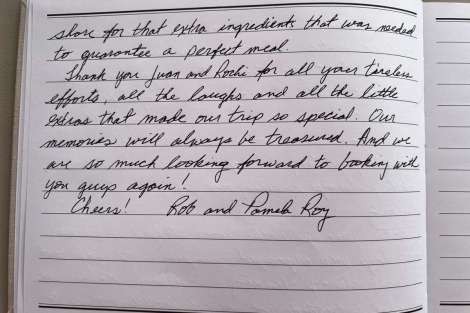 store for that extra ingredients that was needed
to guarantee a perfect meal.
Thank you Juan and Rochi for all your tireless
efforts, all the laughs and all the little
extras that made our trip so special. Our
memories will always be treasured. And we
are so much looking forward to booking with
you guys again!
Cheers! Rob and Pamela Roy